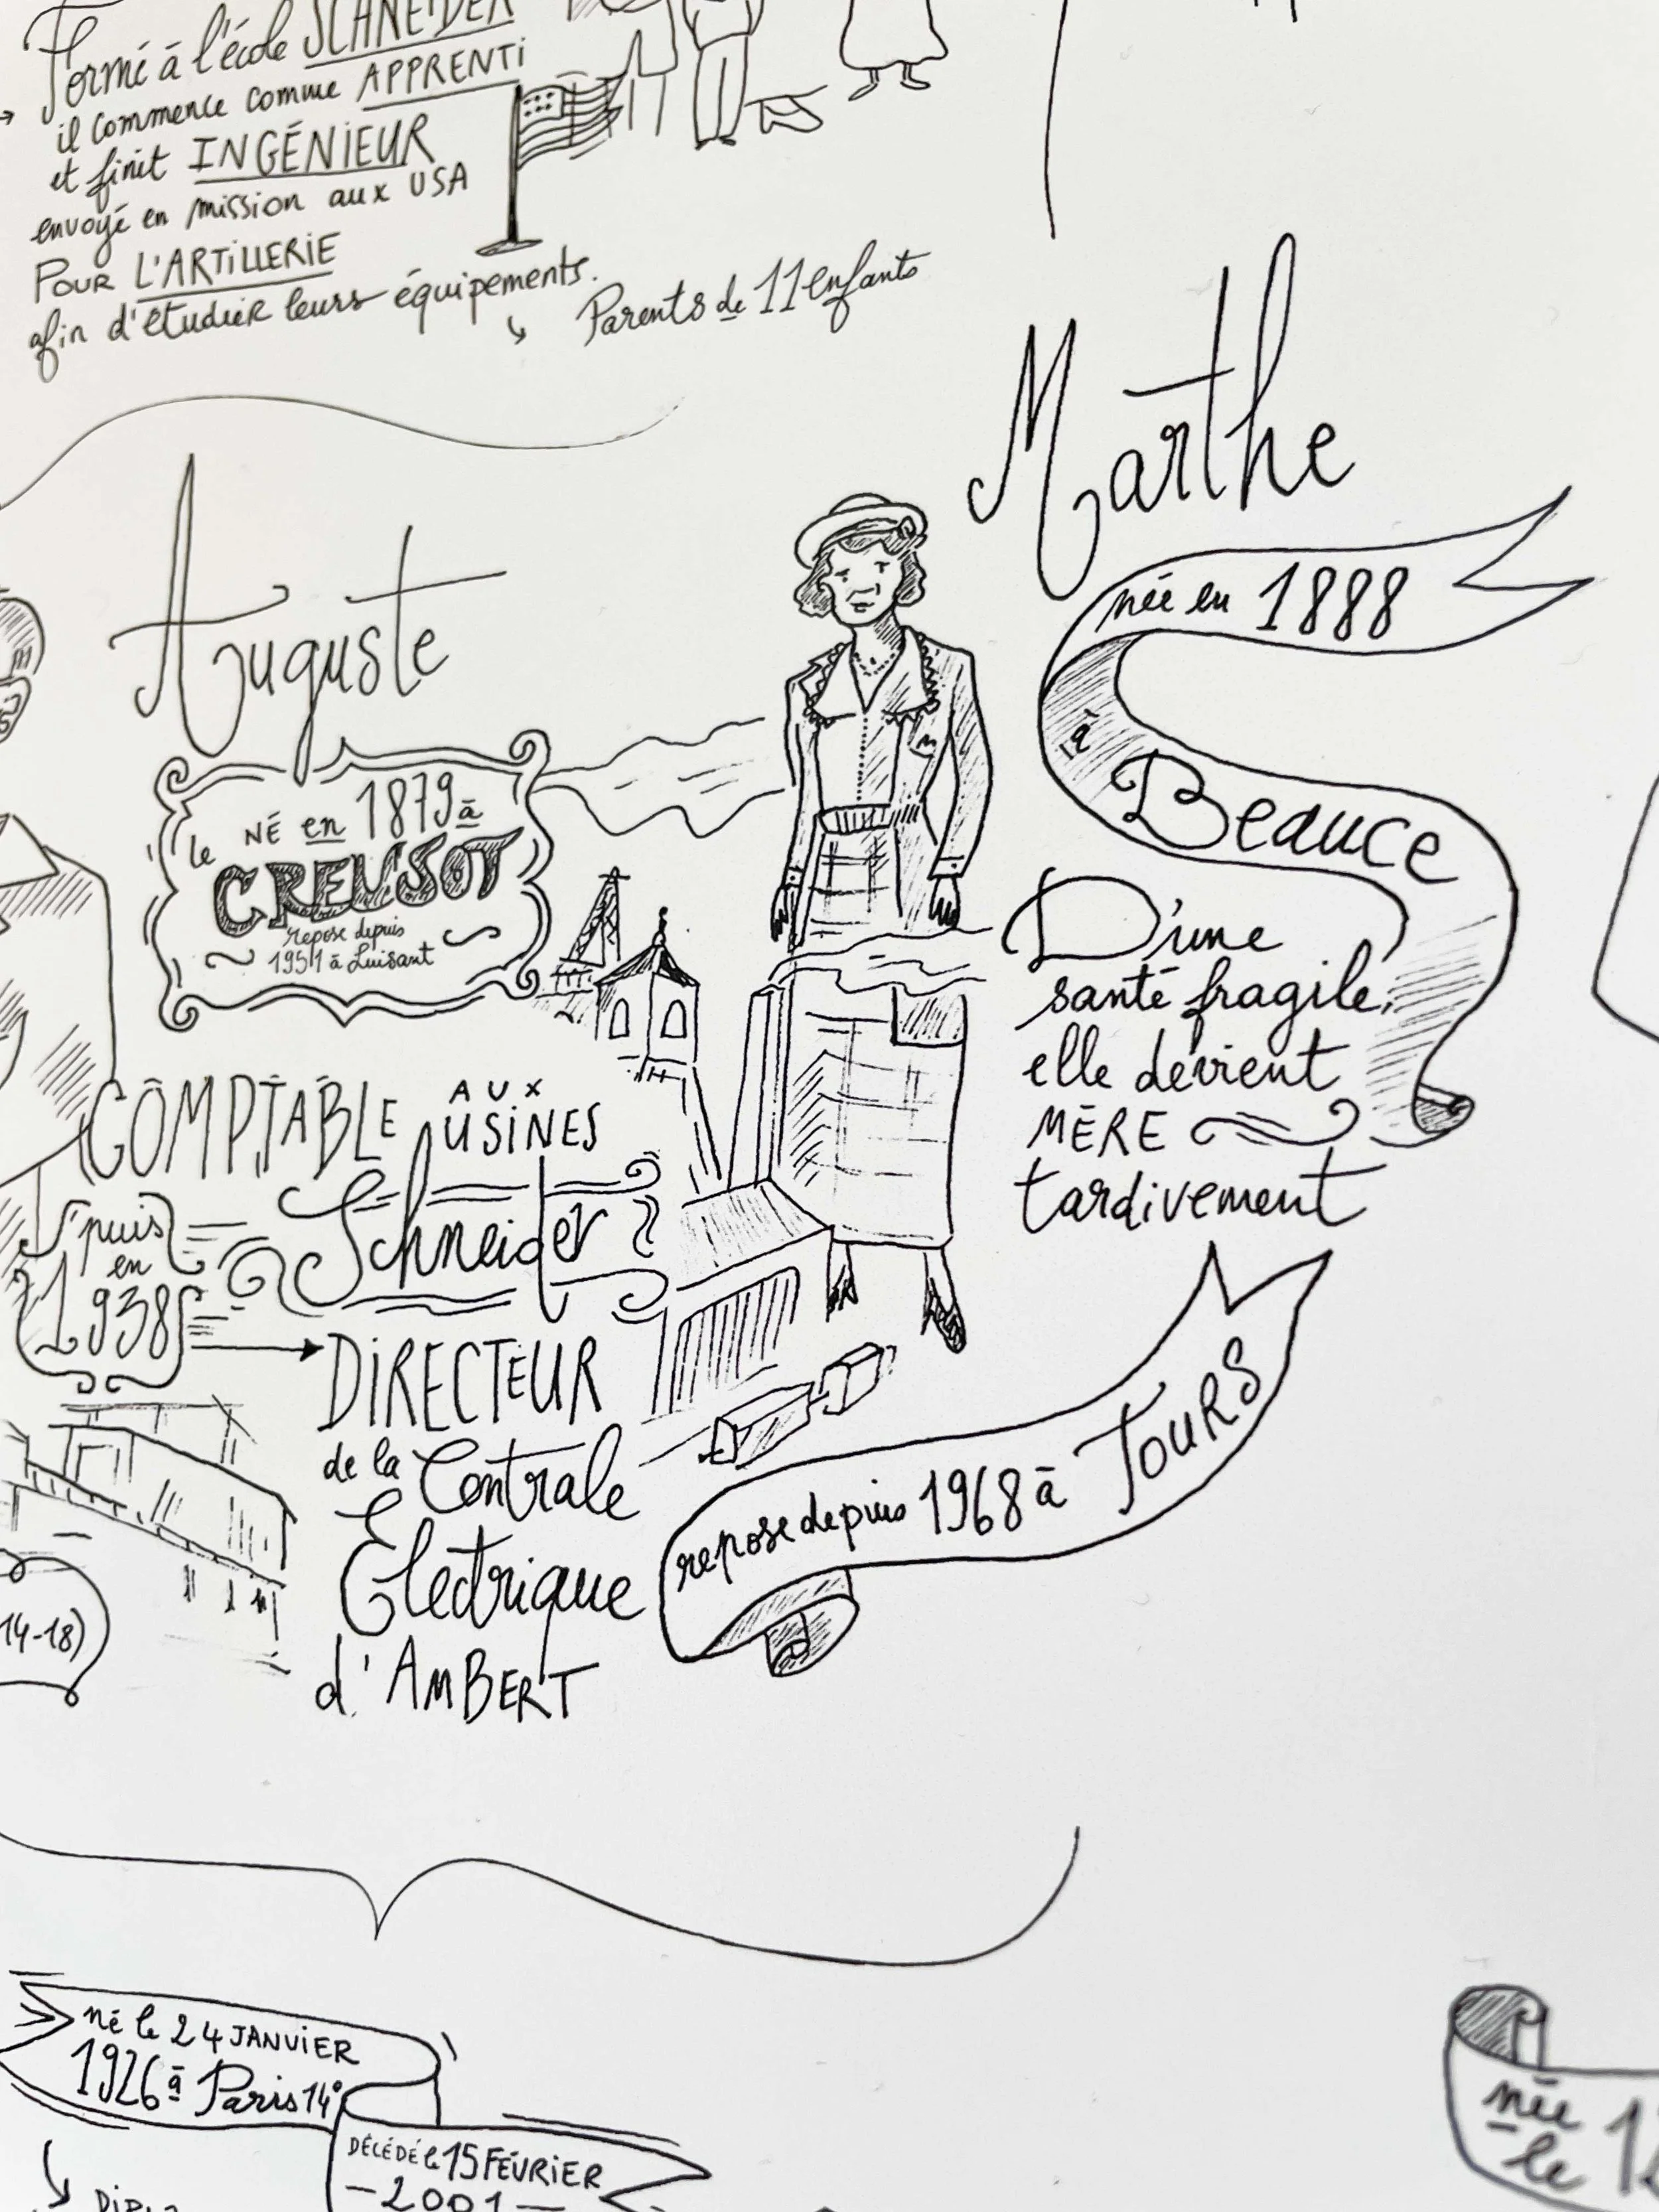 Formé à l'école SCHNEIDER
il commence comme APPRENTI
et finit INGÉNIEUR
envoyé en mission aux USA
POUR L'ARTILLERIE
afin d'étudier leurs équipements.
Parents de 11 enfants
Marthe
née en 1888
à
Beauce
D'une
santé fragile,
elle devient
MÈRE
tardivement
repose depuis 1968 à TOURS
Auguste
NÉ en 1879 à
le CREUSOT
repose depuis
1951 à Luisant
COMPTABLE AUX USINES
Schneider
puis
en
1938
DIRECTEUR
de la Centrale
Électrique
d'AMBERT
14-18)
né le 24 JANVIER
1926 à Paris 14e
DÉCÉDÉ le 15 FÉVRIER
- 2001 -
née
le